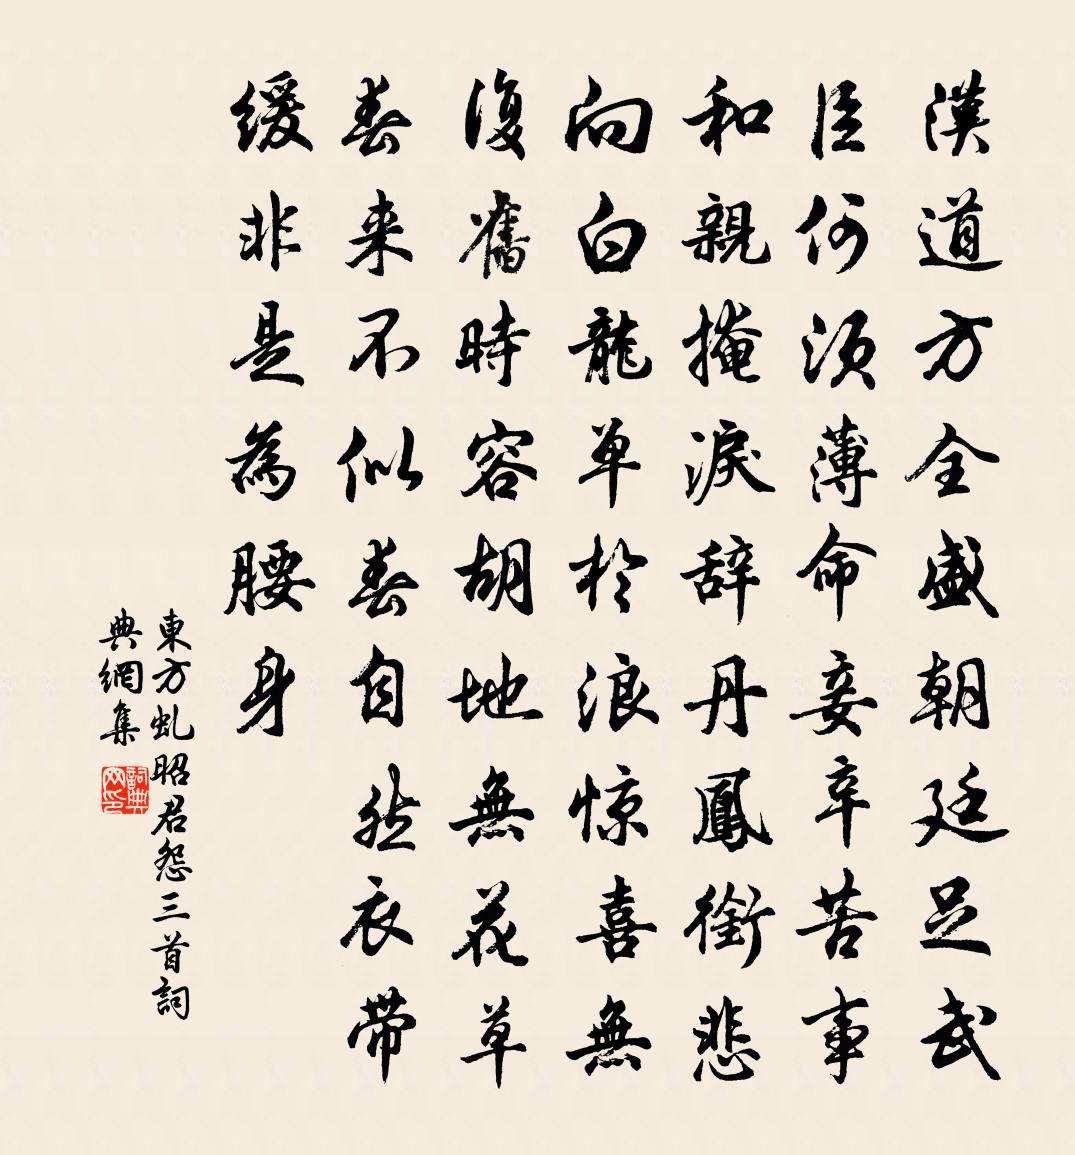 漢道方全盛朝廷足武
臣何須薄命妾辛苦事
和親掩淚辞丹鳳銜悲
向白龍单於浪惊喜無
復舊時容胡地無花草
春来不似春自然衣带
缓非是為腰身
東方虬昭君怨三首詞
典網集
詞典网印